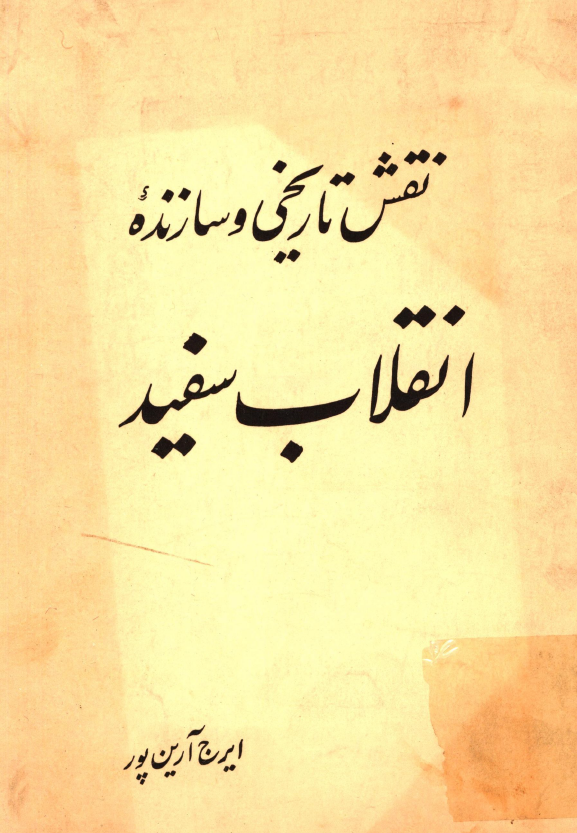 نقش تاریخی و سازندهٔ
انقلاب سفید
ایرج آرین پور